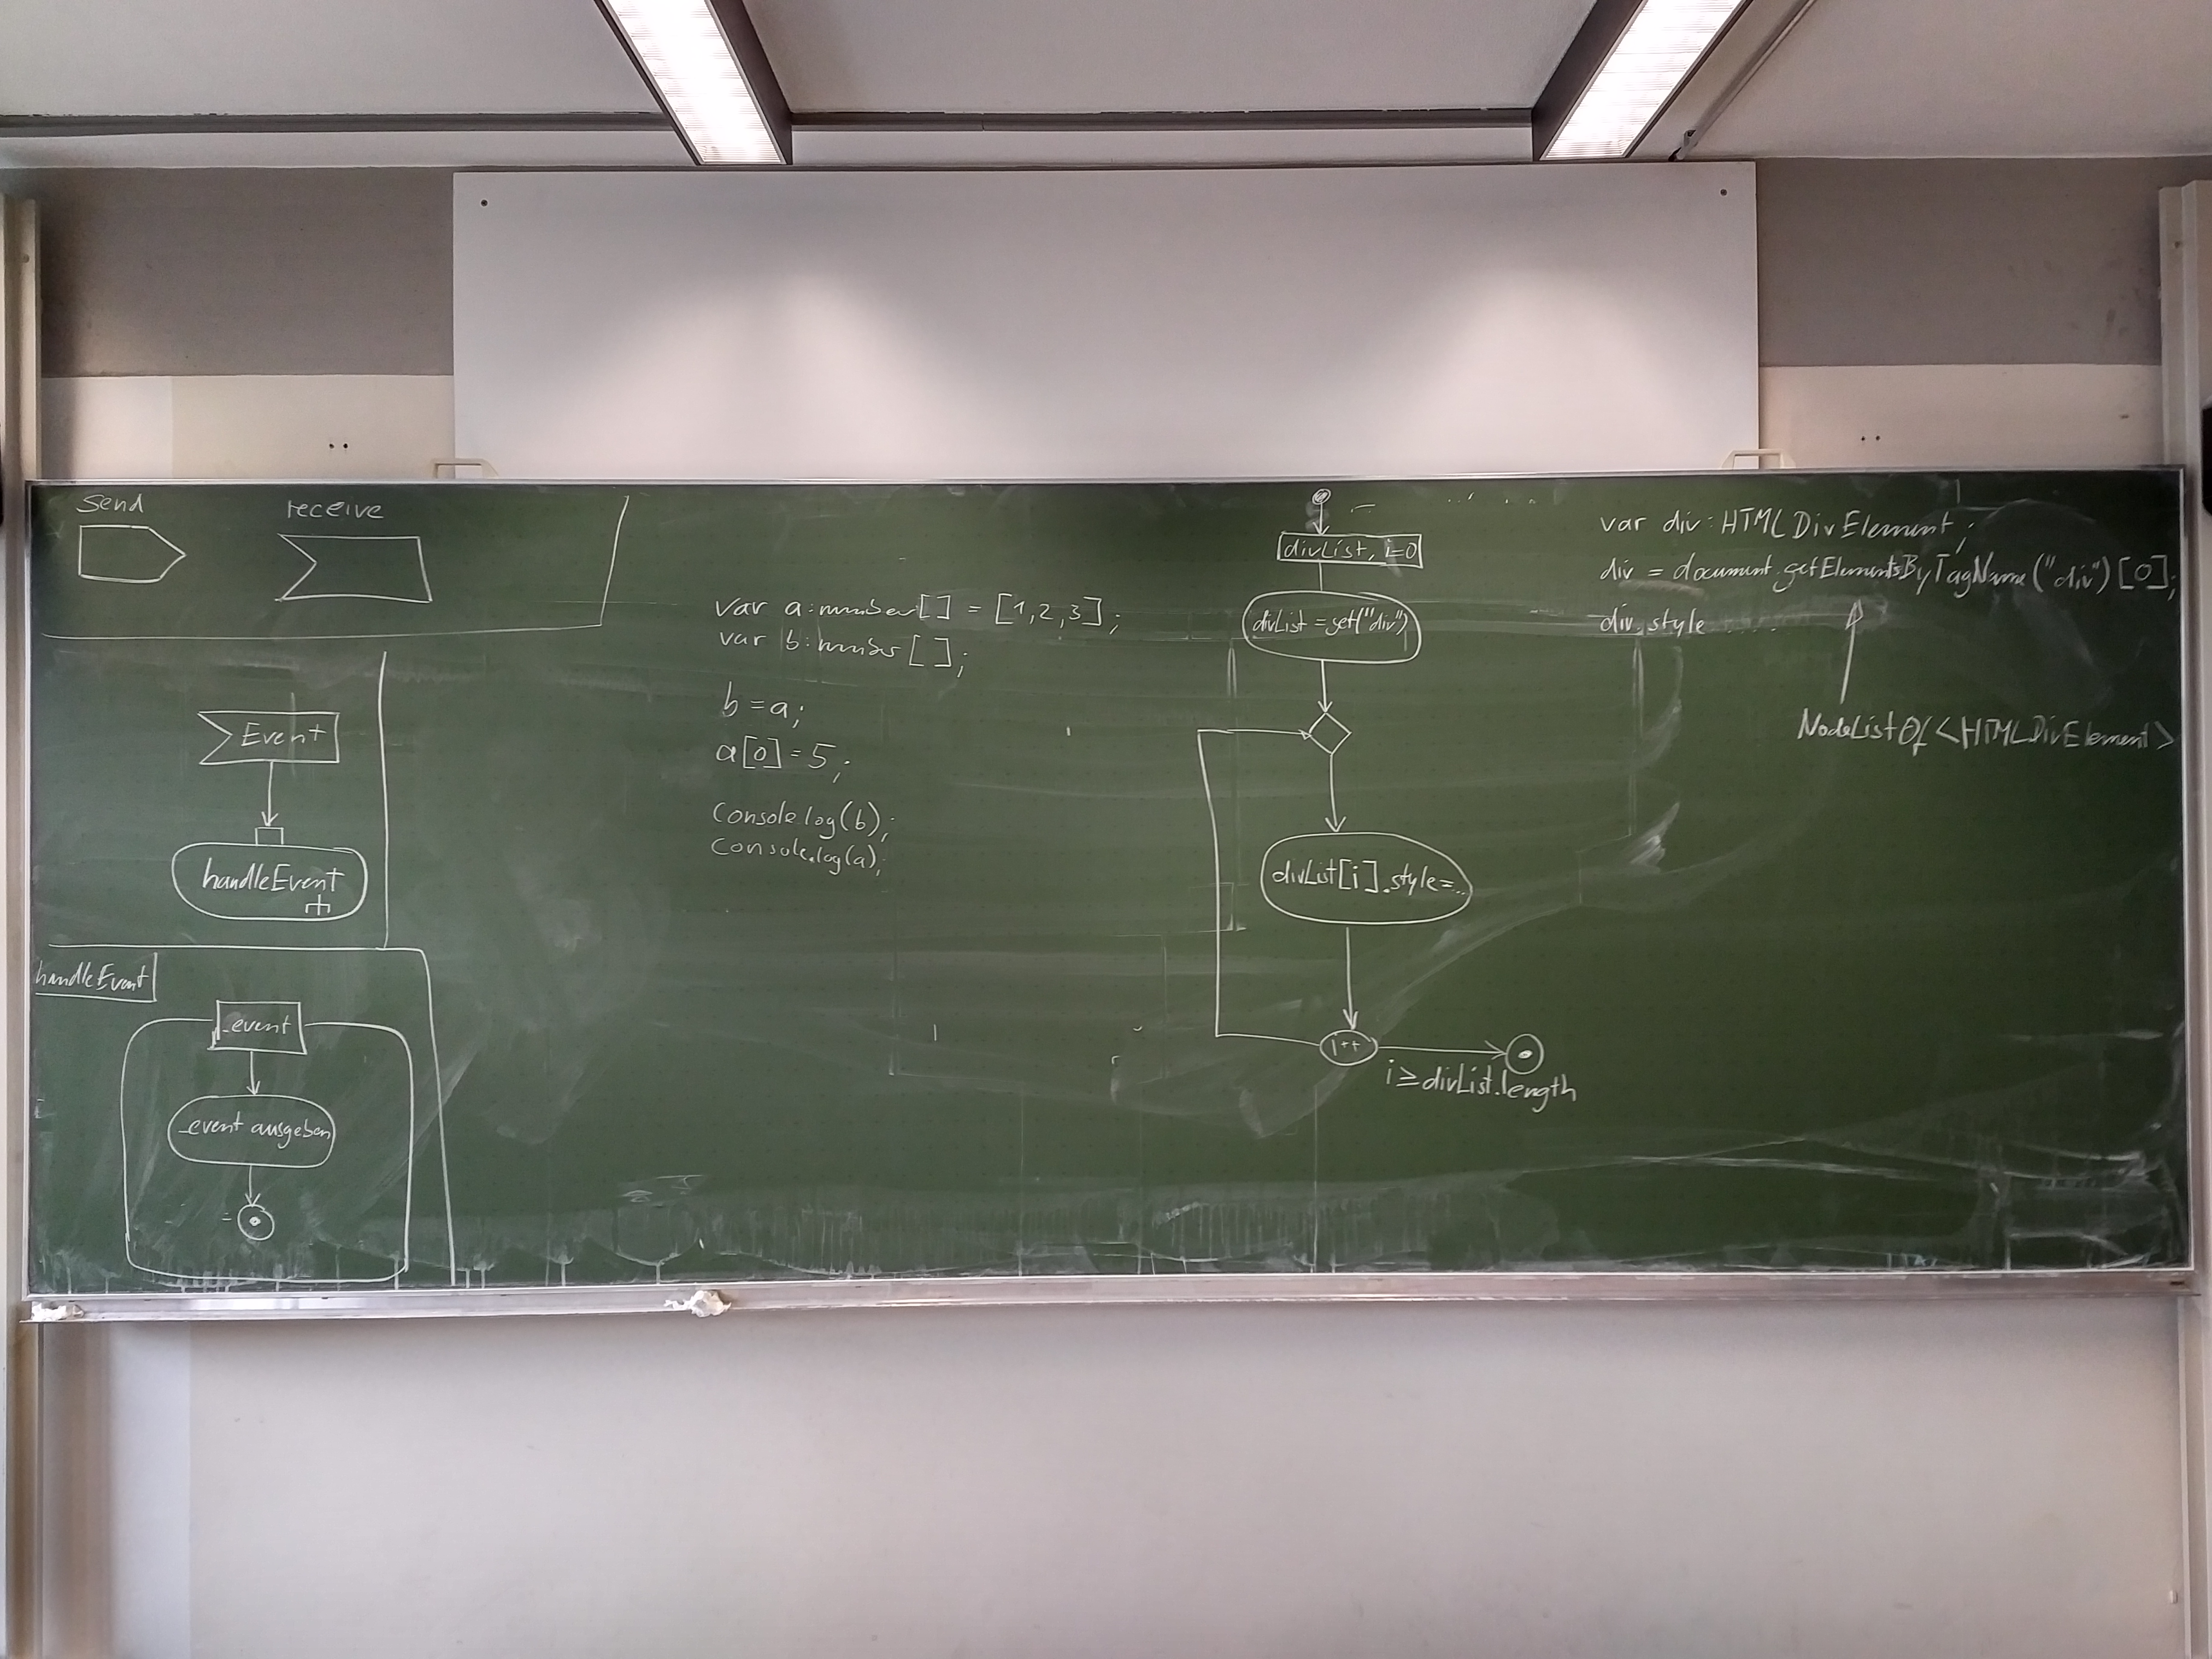 send
receive
Event
handleEvent
handleEvent
_event
_event ausgeben
var a:number[] = [1,2,3];
var b:number[];
b = a;
a[0] = 5;
Console.log(b);
Console.log(a);
divList, i=0
divList = get("div")
divList[i].style=...
i++
i ≥ divList.length
var div: HTMLDivElement;
div = document.getElementsByTagName("div")[0];
div.style ....
NodeListOf<HTMLDivElement>